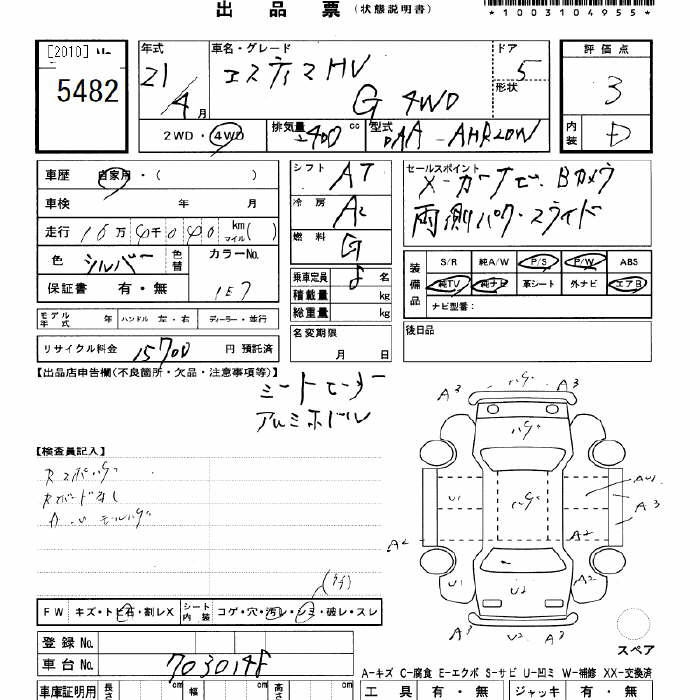 出品票 (状態説明書)
*1003104955*
[2010] No.
5482
年式
21/4月
車名・グレード
エスティマHV
G 4WD
ドア
5
形状
評価点
3
内装
D
2WD・4WD
排気量 2400 cc
型式 DAA-AHR20W
車歴 自家用・( )
車検 年 月
走行 16万4千040 km マイル ( )
色 シルバー 色替
カラーNo. 1E7
保証書 有・無
シフト AT
冷房 AC
燃料 G
乗車定員 8 名
積載量 kg
総重量 kg
セールスポイント
メーカーナビ・Bカメラ
両側パワースライド
装備品
S/R 純A/W P/S P/W ABS
純TV 純ナビ 革シート 外ナビ エアB
ナビ型番:
モデル年式 年 ハンドル 左・右 ディーラー・並行
名変期限
月 日
後日品
リサイクル料金 15700 円 預託済
【出品店申告欄(不良箇所・欠品・注意事項等)】
シートヒーター
アルミホイル
【検査員記入】
A3 A3
A2
U1
AU1
A3
A2
U1 U2 A2
A3 U2 A3
FW キズ・トビ石・割レX
シート内装 コゲ・穴・汚レ・シミ・破レ・スレ
登録No.
車台No. 7030148
スペア
A─キズ C─腐食 E─エクボ S─サビ U─凹ミ W─補修 XX─交換済
車庫証明用 長さ cm 幅 cm 高さ cm
工具 有・無 ジャッキ 有・無